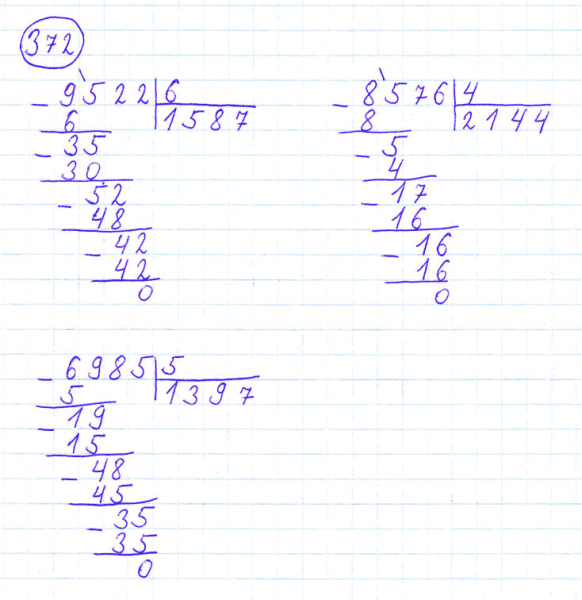 372
- 9522 | 6
6 | 1587
- 35
30
- 52
48
- 42
42
0
- 8576 | 4
8 | 2144
- 5
4
- 17
16
- 16
16
0
- 6985 | 5
5 | 1397
- 19
15
- 48
45
- 35
35
0